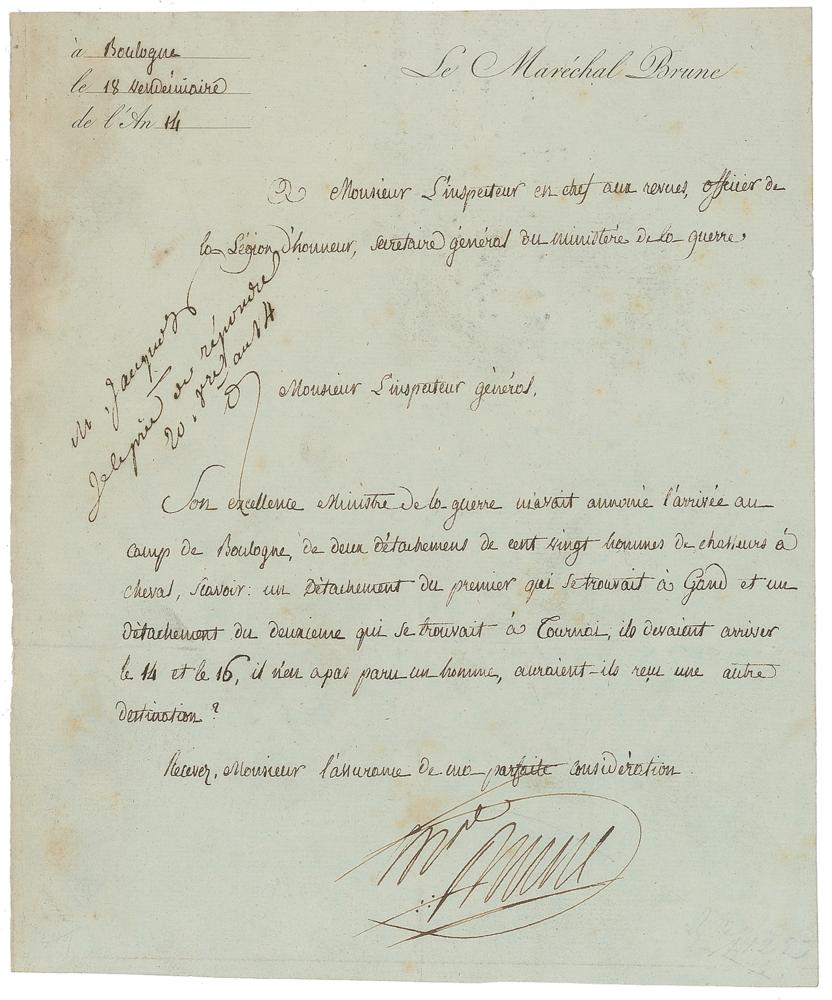 à Boulogne
le 18 Vendémiaire
de l'An 14
Le Maréchal Brune
A Monsieur L'inspecteur en chef aux revues, officier de
la Légion d'honneur, secretaire général du ministère de la guerre
M. Jacquoz
Je le prie de répondre
20. vre an 14
Monsieur L'inspecteur général,
Son excellence Ministre de la guerre m'avait annoncé l'arrivée au
camp de Boulogne, de deux détachemens de cent vingt hommes de chasseurs à
cheval, Scavoir: un Détachement du premier qui se trouvait à Gand et un
détachement du deuxieme qui se trouvait à Tournai, ils devaient arriver
le 14 et le 16, il n'en a pas paru un homme, auraient-ils reçu une autre
destination ?
Recevez, Monsieur l'assurance de ma parfaite considération
Mal Brune